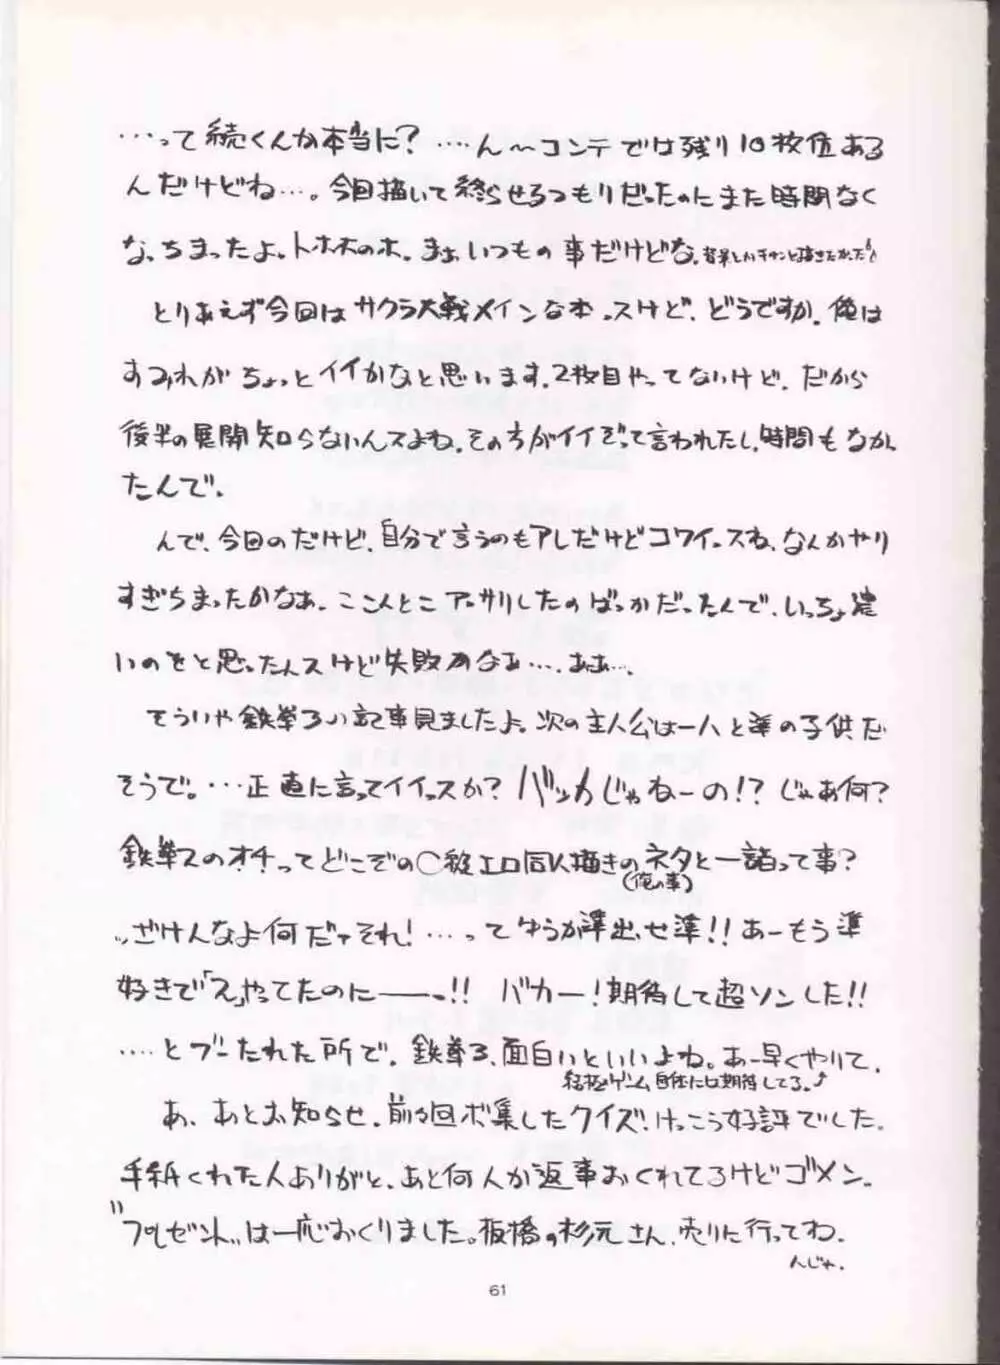 …って続くんか本当に?…．ん～コンテでは残り10枚位ある
んだけどね…。今回描いて終らせるつもりだったのにまた時間なく
なっちまったよ。トホホのホ。まぁ、いつもの事だけどな。背景とかキチンと描きたかった!
とりあえず今回はサクラ大戦メインな本っスけど、どうですか。俺は
すみれがちょっとイイかなと思います。2枚目やってないけど、だから
後半の展開知らないんスよね。その方がイイぞって言われたし、時間もなかっ
たんで。
んで、今回のだけど、自分で言うのもアレだけどコワイっスね、なんかやり
すぎちまったかなぁ。ここんとこアッサリしたのばっかだったんで、いっちょ濃
いのをと思ったんスけど失敗かなぁ…．ああ…
そういや鉄拳3の記事見ましたよ。次の主人公は一八と準の子供だ
そうで。…正直に言ってイイっスか? バッカじゃねーの!? じゃあ何?
鉄拳2のオチってどこぞの〇秘エロ同人描きのネタと一諸って事?
(俺の事)
ッざけんなよ何だァそれ!…．って ゆうか準出せ準!! あーもう準
好きで「2」やってたのにーーっ!! バカー!期待して超ソンした!!
…．とブーたれた所で、鉄拳3、面白いといいよね。あー早くやりて。
結極ゲーム自体には期待してる。
あ、あとお知らせ、前々回ボ集したクイズ、けっこう好評でした。
手紙くれた人ありがと、あと何人か返事おくれてるけどゴメン。
"プレゼント"は一応おくりました。板橋の杉元さん、売りに行ってね。
んじゃ．
61